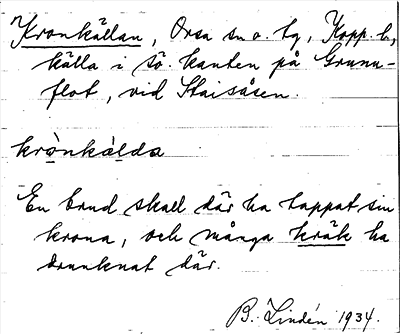 Kronkällan, Orsa sn o. tg, Kopp. l.,
källa i sö. kanten på Grunu-
flot, vid Staisåsen.
krònkä̀lda
En brud skall där ha tappat sin
krona, och många kräk ha
drunknat där.
B. Lindén 1934.